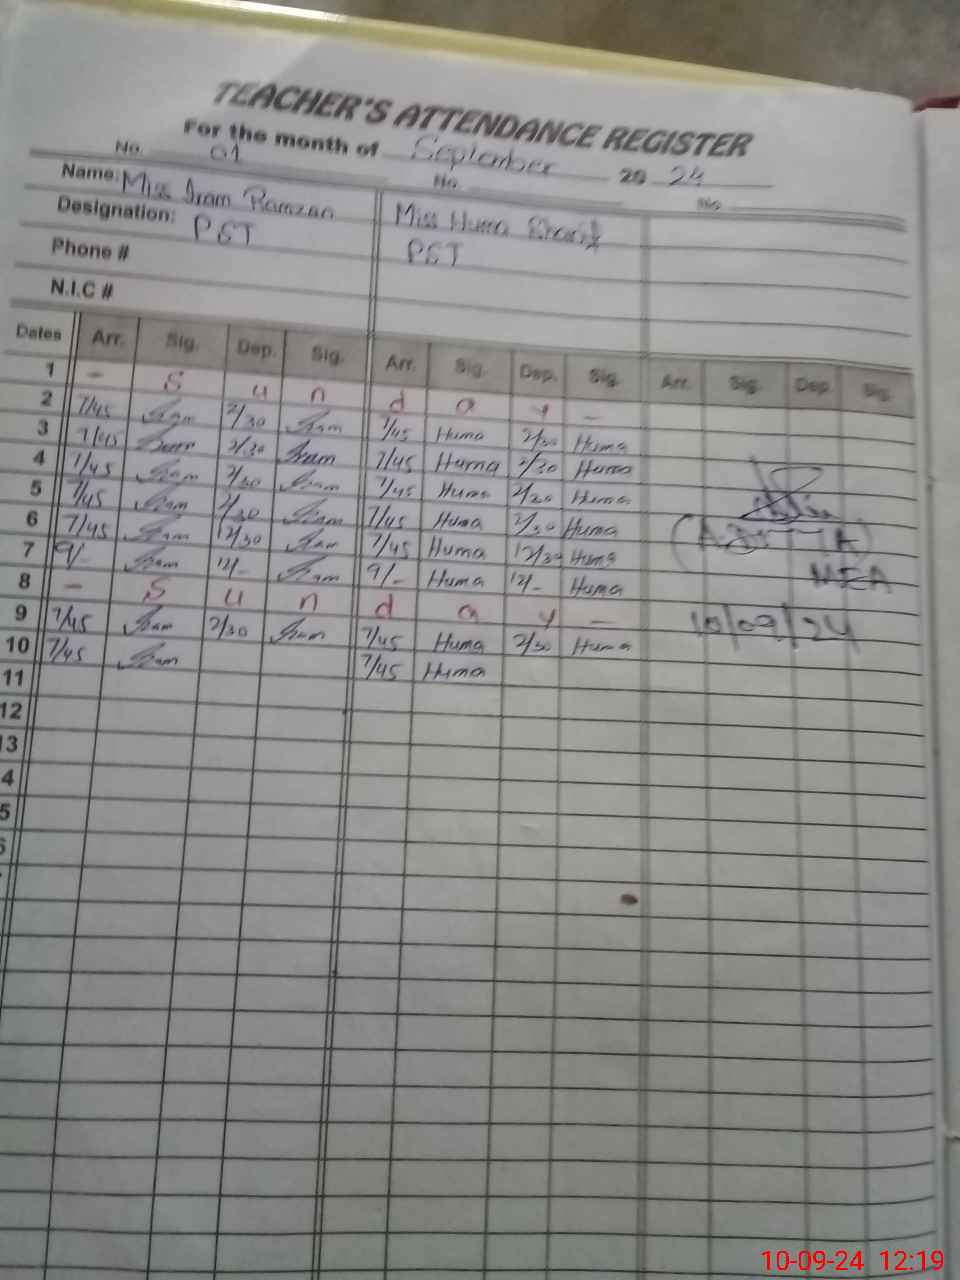 TEACHER'S ATTENDANCE REGISTER
For the month of September 20 24
No. 01 No. No.
Name: Miss Iram Ramzan Miss Huma Sharif
Designation: PST PST
Phone #
N.I.C #
Dates Arr. Sig. Dep. Sig. Arr. Sig. Dep. Sig. Arr. Sig. Dep. Sig.
1 - S u n d a y -
2 7/45 Iram 2/30 Iram 7/45 Huma 2/30 Huma
3 7/45 Iram 2/30 Iram 7/45 Huma 2/30 Huma
4 7/45 Iram 2/30 Iram 7/45 Huma 2/30 Huma
5 7/45 Iram 2/30 Iram 7/45 Huma 2/30 Huma
6 7/45 Iram 12/30 Iram 7/45 Huma 12/30 Huma
7 9/- Iram 12/- Iram 9/- Huma 12/- Huma
8 - S u n d a y -
9 7/45 Iram 2/30 Iram 7/45 Huma 2/30 Huma
10 7/45 Iram 7/45 Huma
11
12
13
4
5
MEA
10/09/24
10-09-24 12:19